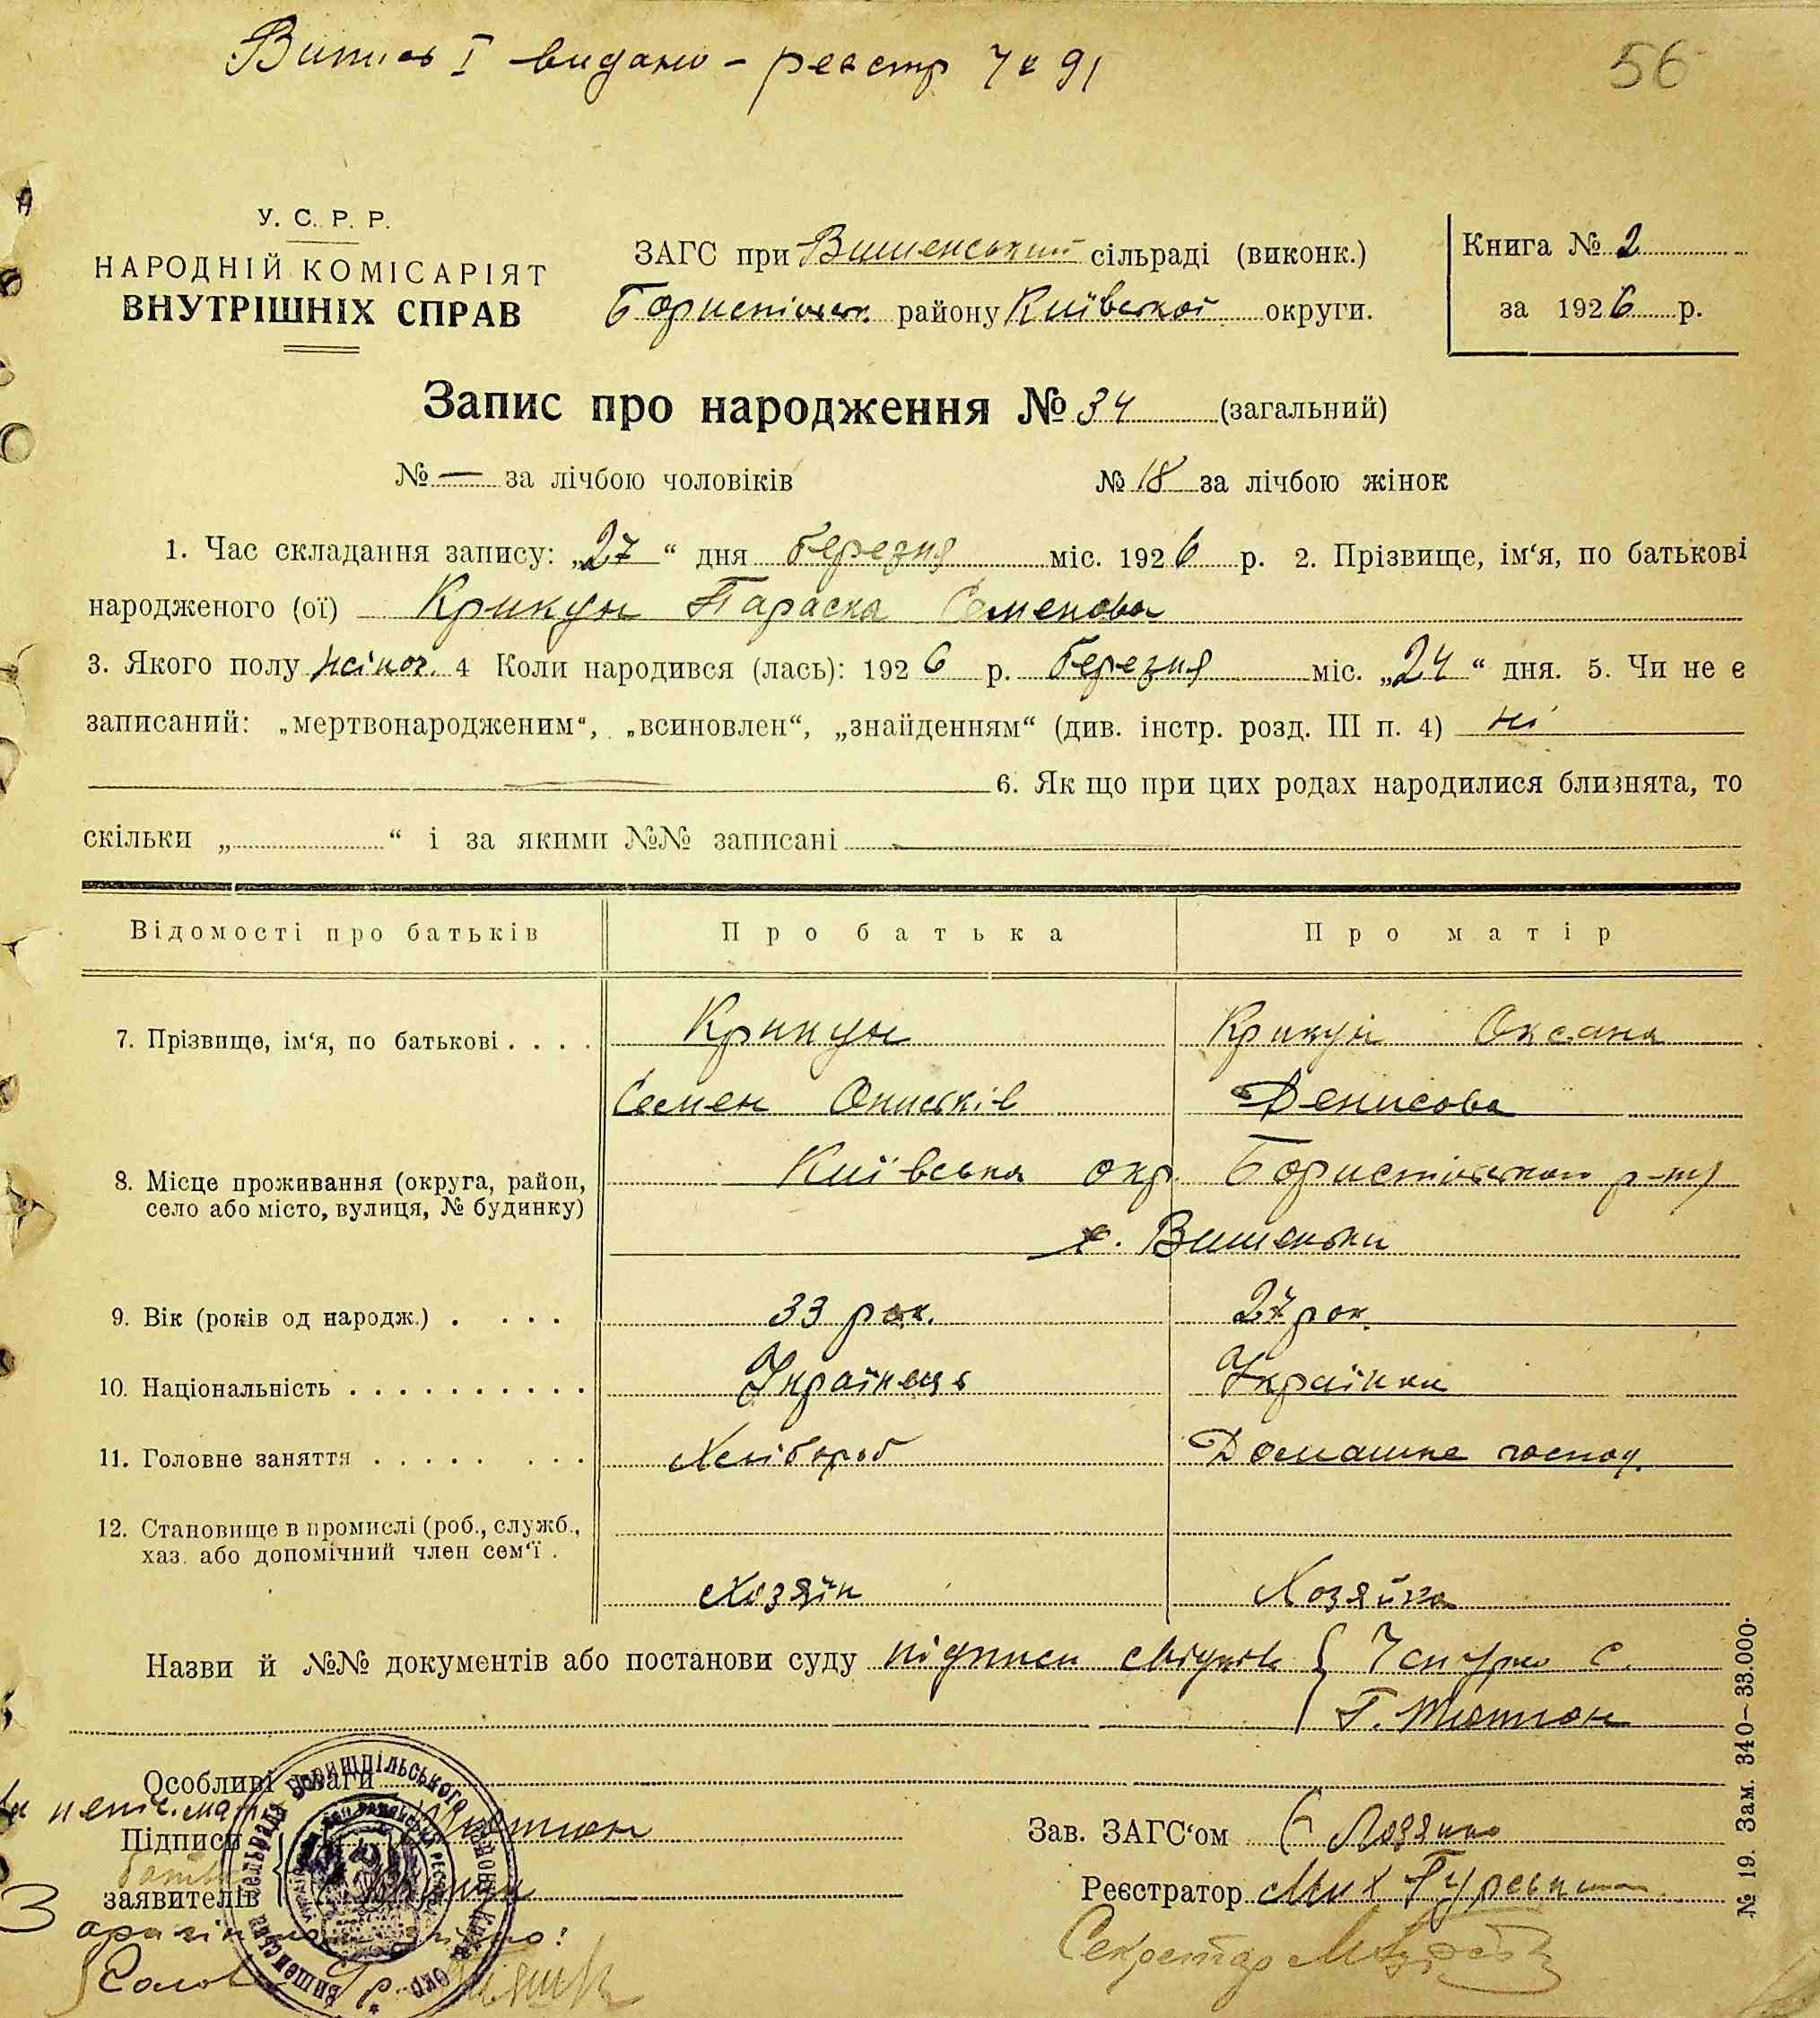 Випись I видано - реєстр 7 к 91
56
У. С. Р. Р.
НАРОДНІЙ КОМІСАРІЯТ
ВНУТРІШНІХ СПРАВ
ЗАГС при Вишенській сільраді (виконк.)
Бориспільск. району Київської округи.
Книга № 2
за 1926 р.
Запис про народження № 34 (загальний)
№ — за лічбою чоловіків № 18 за лічбою жінок
1. Час складання запису: „27“ дня березня міс. 1926 р. 2. Прізвище, ім‘я, по батькові
народженого (ої) Крикун Параска Семенова
3. Якого полу жіноч. 4 Коли народився (лась): 1926 р. березня міс. „24“ дня. 5. Чи не є
записаний: „мертвонародженим“, „всиновлен“, „знайденням“ (див. інстр. розд. III п. 4) ні
6. Як що при цих родах народилися близнята, то
скільки „ “ і за якими №№ записані
Відомості про батьків Про батька Про матір
7. Прізвище, ім‘я, по батькові . . . . Крикун Крикун Оксана
Семен Денисова
8. Місце проживання (округа, район, Київська окр. Бориспільского р-ну
село або місто, вулиця, № будинку) с. Вишеньки
9. Вік (років од народж.) . . . . 33 рок. 27 рок.
10. Національність . . . . . . . . . . Українець Українка
11. Головне заняття . . . . . . . . Хлібороб Домашнє господ.
12. Становище в промислі (роб., служб.,
хаз. або допомічний член сем‘ї .
Хозяїн Хозяйка
Назви й №№ документів або постанови суду підписи свідків С.
Г. Тютюн
Особливі уваги
Підписи Тютюн
заявителів
Зав. ЗАГС‘ом
Реєстратор Мих
Секретар
З оригіналом
№ 19. Зам. 340—33.000.